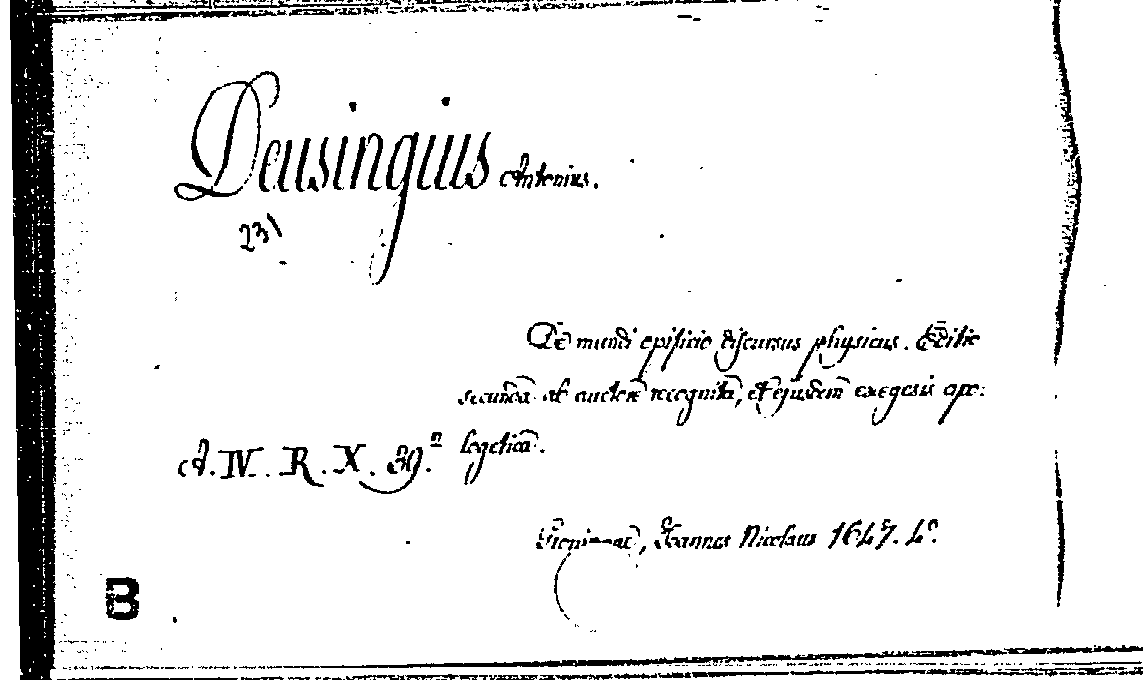 Deusingius Antonius.
231
De mundi opificio discursus physicus. Editio
secunda ab auctore recognita, et ejusdem exegesis apo:
logetica.
A. IV. R. X. 39.a
Joannes Nicolaus 1647. 4°.
B